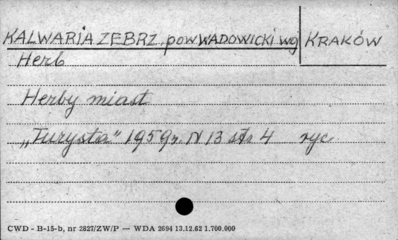 KALWARIA ZEBRZ. pow WADOWICKI wg KRAKÓW
Herb
Herby miast
„Turysta" 1959r. N 13 sts 4 ryc
CWD - B-15-b, nr 2827/ZW/P — WDA 2694 13.12.62 1.700.000